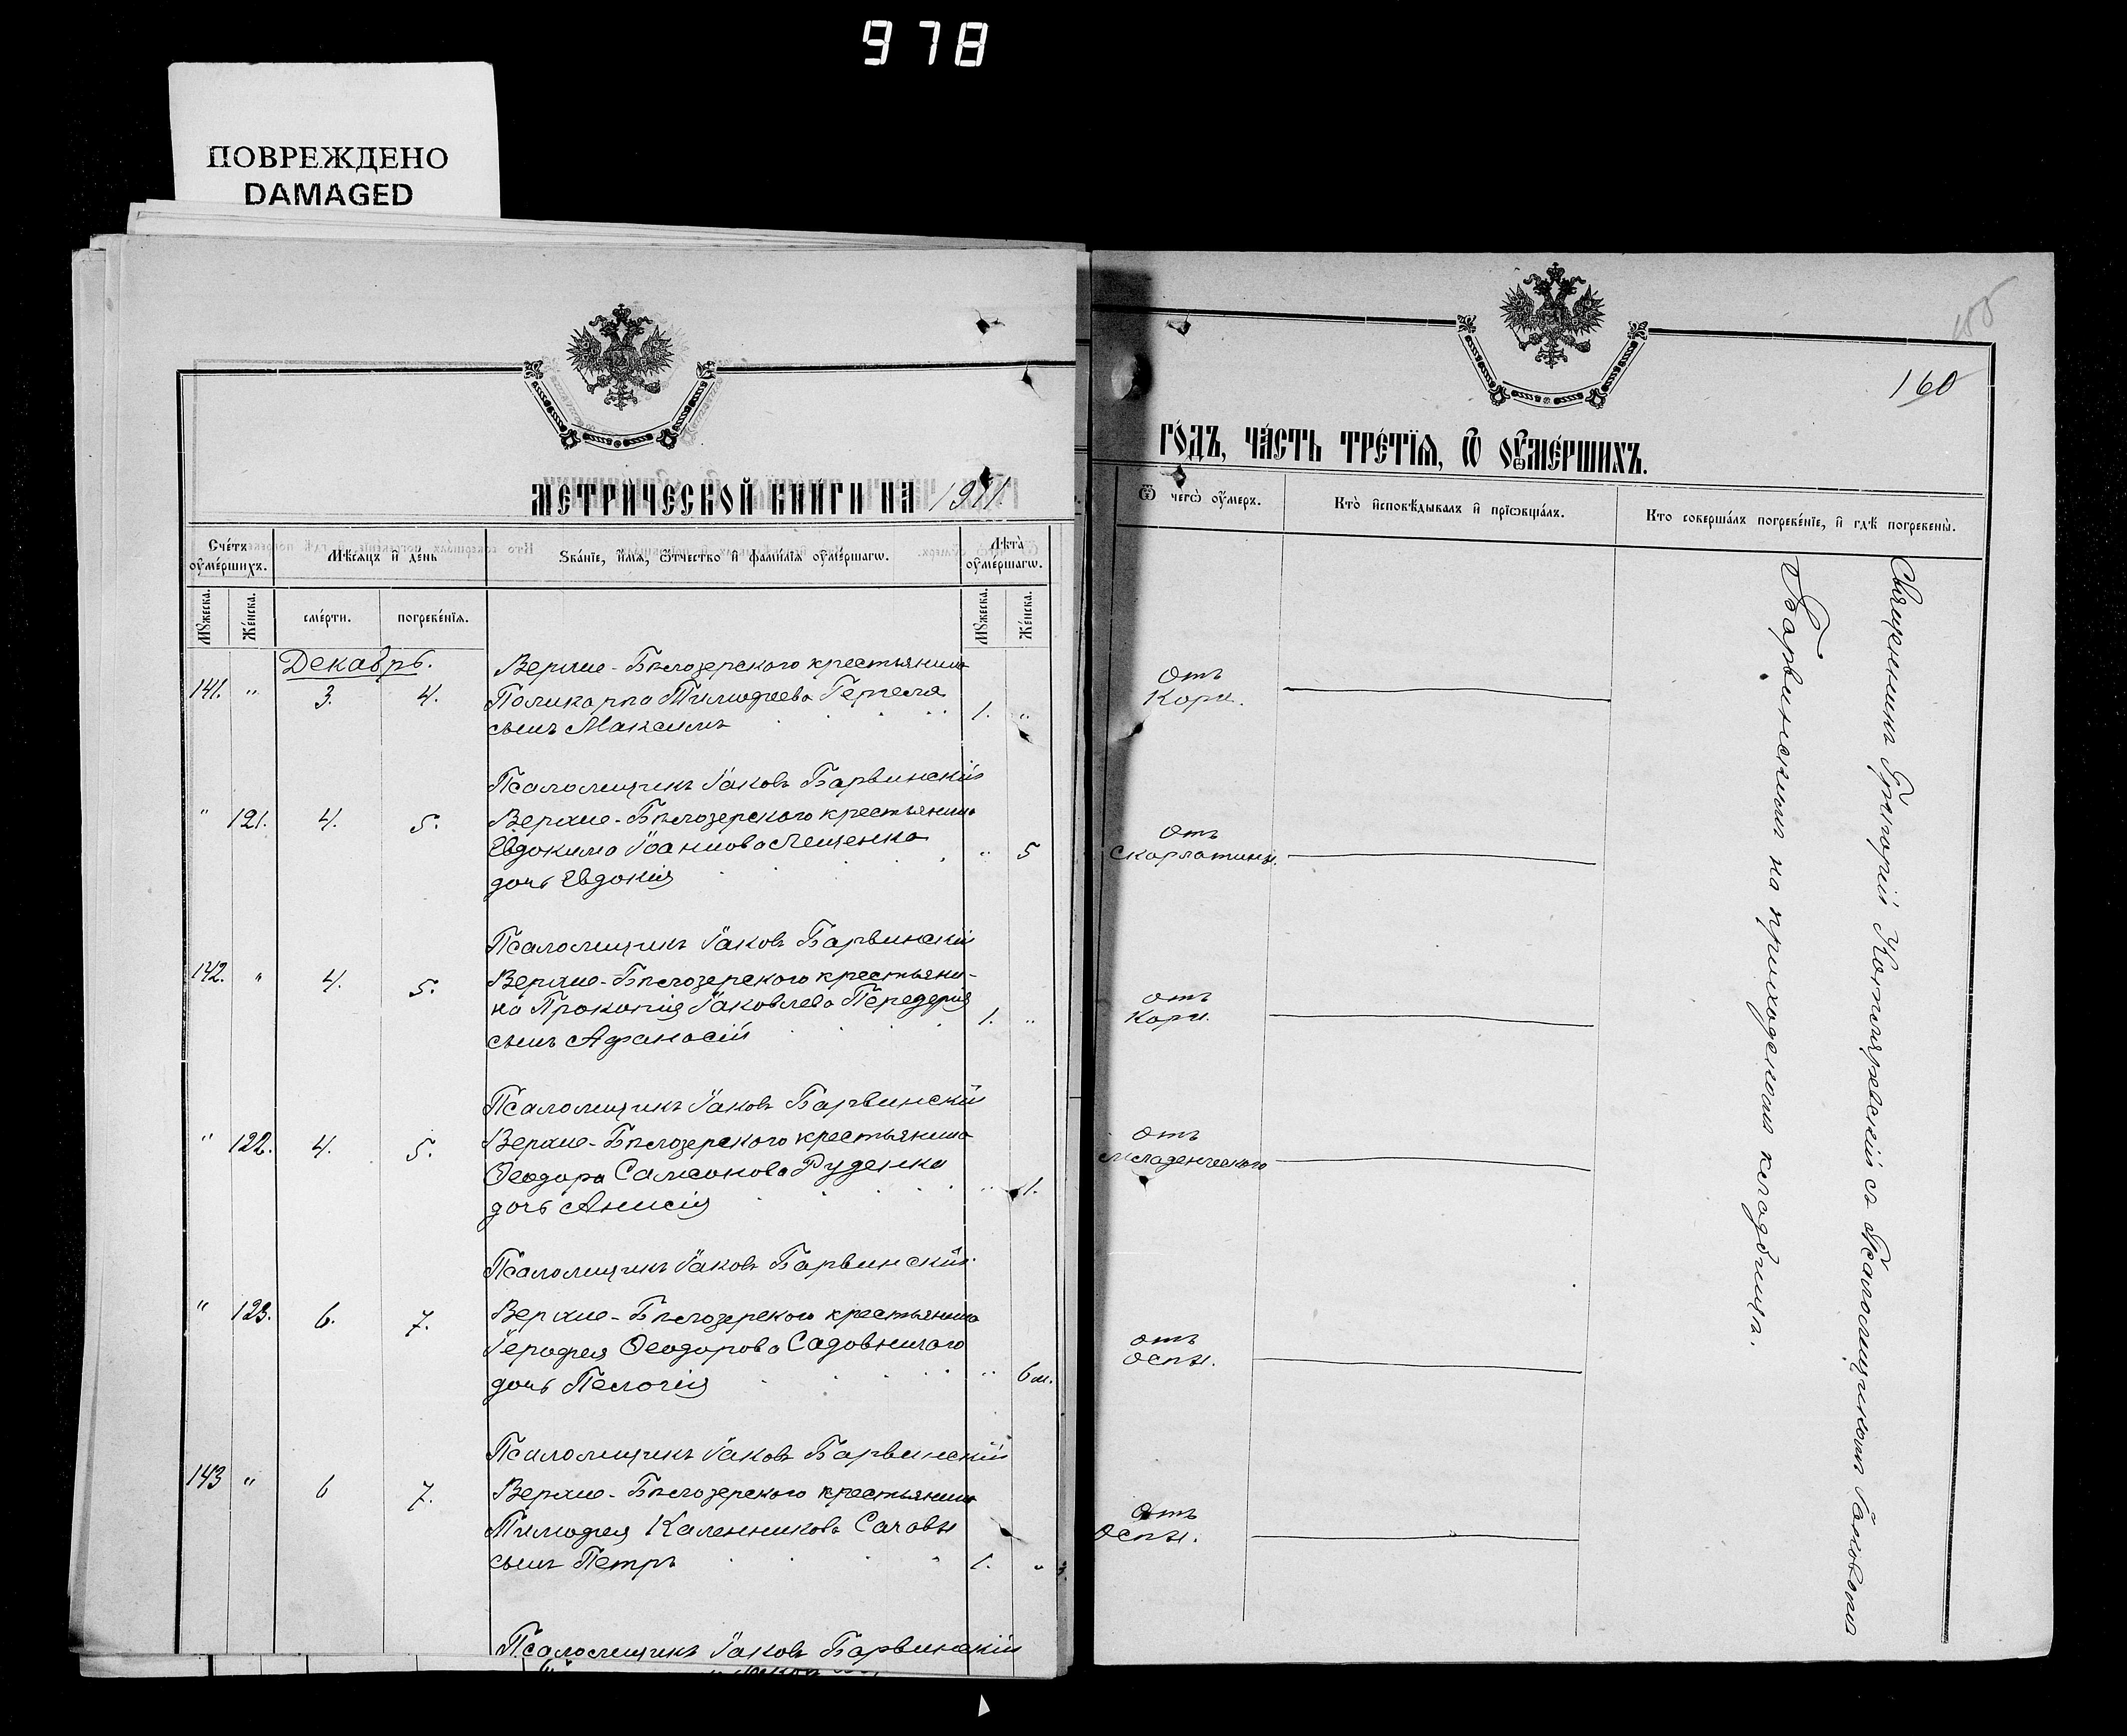 978
ПОВРЕЖДЕНО
DAMAGED
МЕТРИЧЕСКОЙ КНИГИ НА 1911
Счетъ оумершихъ.
Мѣсяцъ и день
Званіе, имя, отчество и фамилія оумершагѡ.
Лѣта оумершагѡ.
Мужеска.
Женска.
смерти.
погребенія.
Мужеска.
Женска.
Декабрь.
Верхне-Бѣлозерскаго крестьянина
141. " 3. 4. Поликарпа Тимофеева Гергеля
сынъ Максимъ 1. "
Псаломщикъ Іаковъ Барвинскій
" 121. 4. 5. Верхне-Бѣлозерскаго крестьянина
Евдокима Іоаннова Лещенка
дочь Евдокія " 5
Псаломщикъ Іаковъ Барвинскій
142. " 4. 5. Верхне-Бѣлозерскаго крестьяни-
на Прокопія Іаковлева Передерія
сынъ Афанасій 1. "
Псаломщикъ Іаковъ Барвинскій
" 122. 4. 5. Верхне-Бѣлозерскаго крестьянина
Ѳеодора Самсонова Руденка
дочь Анисія " 1.
Псаломщикъ Іаковъ Барвинскій
" 123. 6. 7. Верхне-Бѣлозерскаго крестьянина
Іерофея Ѳеодорова Садовничаго
дочь Пелагія " 6 м.
Псаломщикъ Іаковъ Барвинскій
143 " 6 7. Верхне-Бѣлозерскаго крестьянина
Тимофея Каленникова Сачавы
сынъ Петръ 1. "
Псаломщикъ Іаковъ Барвинскій
160
ГОДЪ, ЧАСТЬ ТРЕТІЯ, Ѡ ОУМЕРШИХЪ.
Ѿ чегѡ оумеръ.
Кто исповѣдывалъ и пріѡбщалъ.
Кто совершалъ погребеніе, и гдѣ погребены.
отъ
Кори.
отъ
Скарлатины.
отъ
Кори.
отъ
младенческаго
отъ
оспы.
отъ
оспы.
Священникъ Григорій Котляревскій съ Псаломщикомъ Іаковомъ
Барвинскимъ на приходскомъ кладбищѣ.